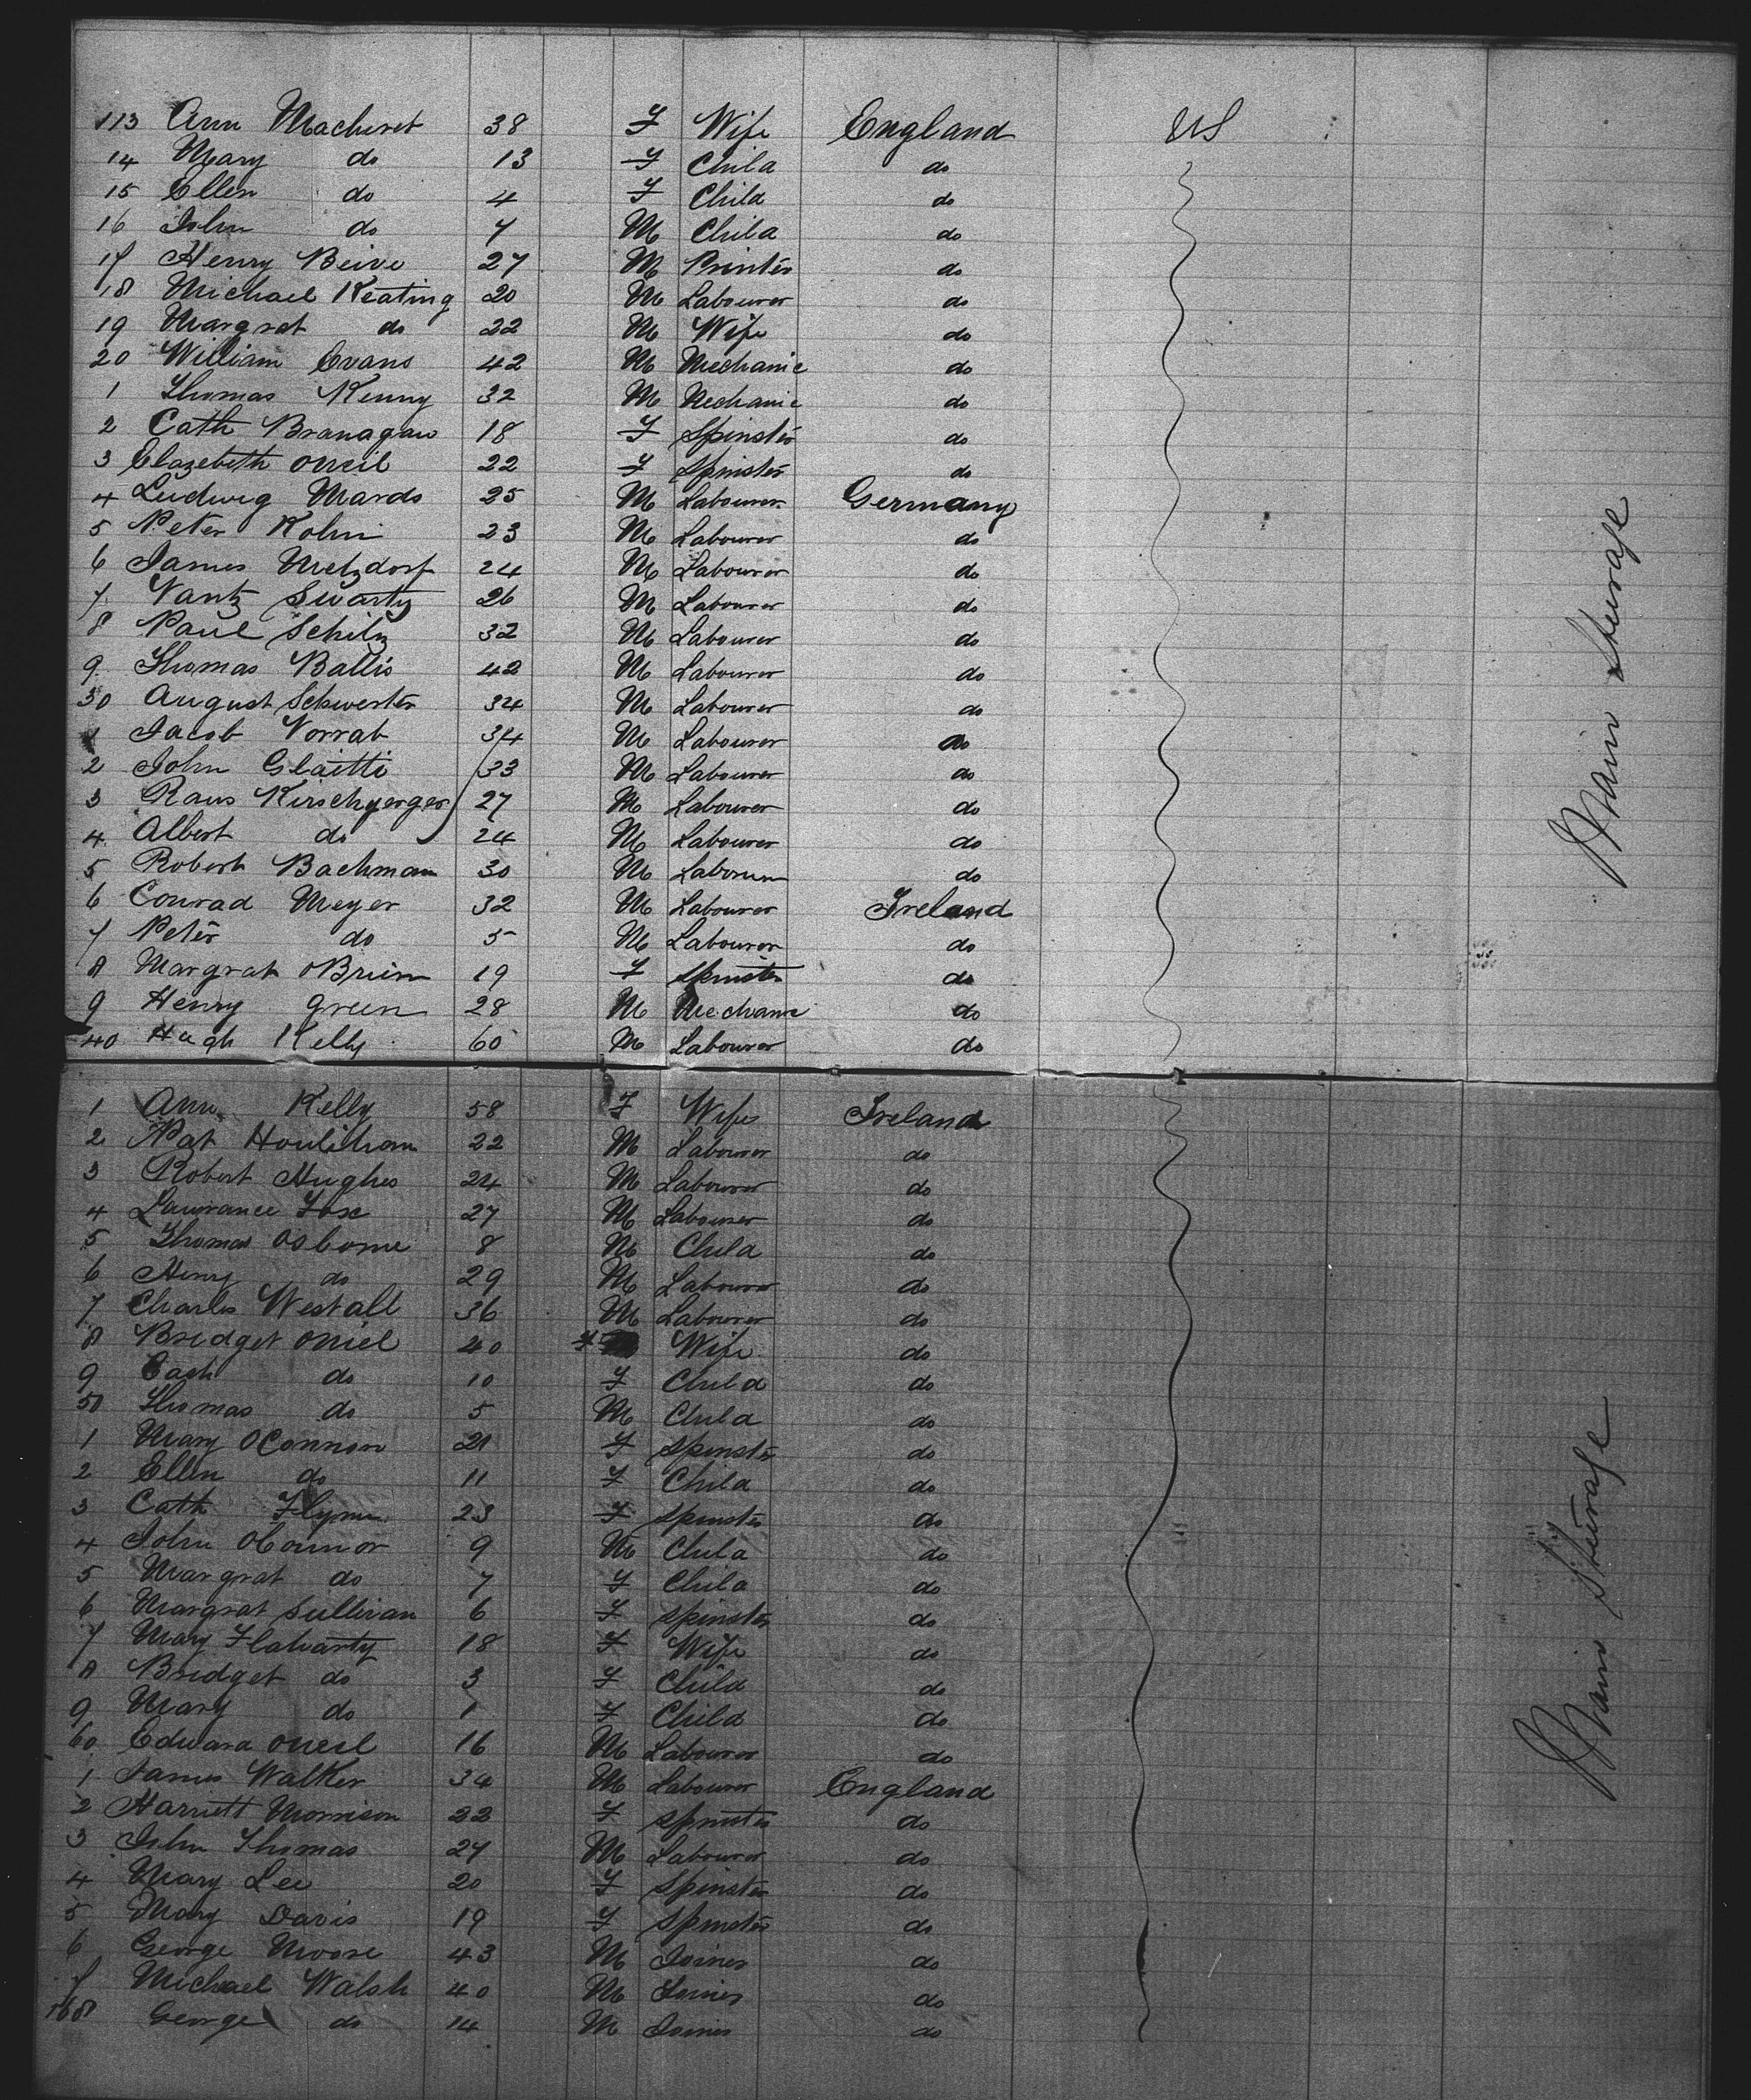 113 Ann Machiret 38 F Wife England US
14 Mary do 13 F Child do
15 Ellen do 4 F Child do
16 John do 7 M Child do
17 Henry Beive 27 M Printer do
18 Michael Keating 20 M Labourer do
19 Margrat do 22 M Wife do
20 William Evans 42 M Mechanic do
1 Thomas Kenny 32 M Mechanic do
2 Cath Branagan 18 F Spinster do
3 Elazebeth Oneil 22 F Spinster do
4 Ludwig Mards 25 M Labourer Germany
5 Peter Kohn 23 M Labourer do
6 James Metzdorf 24 M Labourer do
7 Vantz Swartz 26 M Labourer do
8 Paul Schilz 32 M Labourer do
9 Thomas Ballis 42 M Labourer do
30 August Schwerter 34 M Labourer do
1 Jacob Vorrab 34 M Labourer do
2 John Glaitti 33 M Labourer do
3 Raus Kirschgerger 27 M Labourer do
4 Albert do 24 M Labourer do
5 Robert Bachman 30 M Labourer do
6 Conrad Meyer 32 M Labourer Ireland
7 Peter do 5 M Labourer do
8 Margrat OBrien 19 F Spinster do
9 Henry Green 28 M Mechanic do
40 Hugh Kelly 60 M Labourer do
Main Sturage
1 Ann Kelly 58 F Wife Ireland
2 Pat Houlihan 22 M Labourer do
3 Robert Hughes 24 M Labourer do
4 Laurance Fox 27 M Labourer do
5 Thomas Osborne 8 M Child do
6 Henry do 29 M Labourer do
7 Charles Westall 36 M Labourer do
8 Bridget Oniel 40 F Wife do
9 Cath do 10 F Child do
50 Thomas do 5 M Child do
1 Mary OConnor 21 F Spinster do
2 Ellen do 11 F Child do
3 Cath Flynn 23 F Spinster do
4 John OConnor 9 M Child do
5 Margrat do 7 F Child do
6 Margrat Sullivan 6 F Spinster do
7 Mary Flaharty 18 F Wife do
8 Bridget do 3 F Child do
9 Mary do 1 F Child do
60 Edward Oneil 16 M Labourer do
1 James Walker 34 M Labourer England
2 Harriett Morrison 22 F Spinster do
3 John Thomas 27 M Labourer do
4 Mary Lee 20 F Spinster do
5 Mary Davis 19 F Spinster do
6 George Moore 43 M Joiner do
7 Michael Walsh 40 M Joiner do
168 George do 14 M Joiner do
Main Sturage